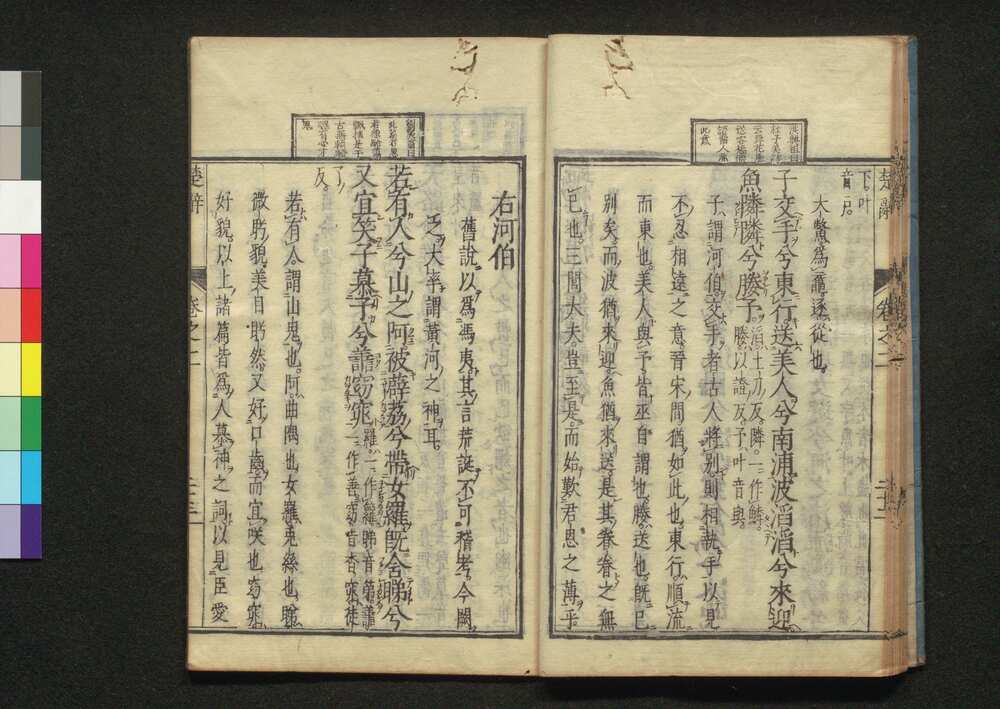 下叶
音戸
大鱉爲黿逐從也
子交手兮東行送美人兮南浦波滔滔兮來迎
魚隣隣兮媵予滔土刀反隣一作鱗
媵以證反予叶音與
子謂河伯交手者古人將別則相執手以見
不忍相遠之意晉宋間猶如此也東行順流
而東也美人與予皆巫自謂也媵送也既已
別矣而波猶來迎魚猶來送是其眷眷之無
已也三閭大夫豈至是而始歎君恩之薄乎
楚辭 卷之二
右河伯
舊說以爲馮夷其言荒誕不可稽考今闕
之大率謂黃河之神耳
若有人兮山之阿被薜荔兮帶女羅既含睇兮
又宜笑子慕予兮善窈窕羅一作蘿睇音第善
一作譱窈音杳窕徒
了反
若有人謂山鬼也阿曲隅也女羅兎絲也睇
微眄貌美目眄然又好口齒而宜咲也窈窕
好貌以上諸篇皆爲人慕神之詞以見臣愛
楚辭 卷之二